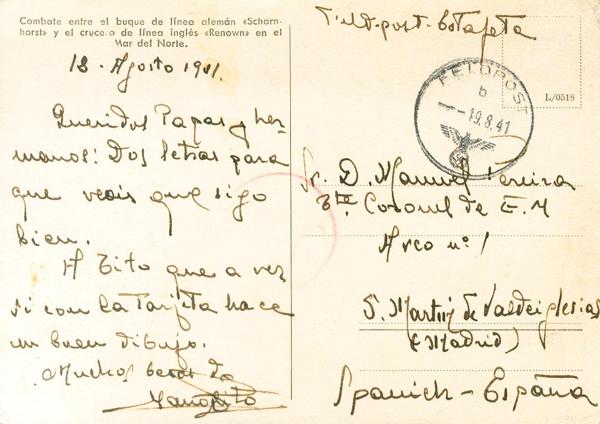 Combate entre el buque de línea alemán «Scharn-
horst» y el crucero de línea inglés «Renown» en el
Mar del Norte.
18 - Agosto 1941.
Queridos Papas y her-
manos: Dos letras para
que veais que sigo
bien.
A Tito que a ver
si con la tarjeta hace
un buen dibujo.
Muchos besos de
Manolito
Feldpost-Estafeta
L/0518
FELDPOST
b
-19.8.41
Sr. D. Manuel Pereira
Tte. Coronel de E. M
Arco nº 1
S. Martin de Valdeiglesias
(Madrid)
Spanich - España